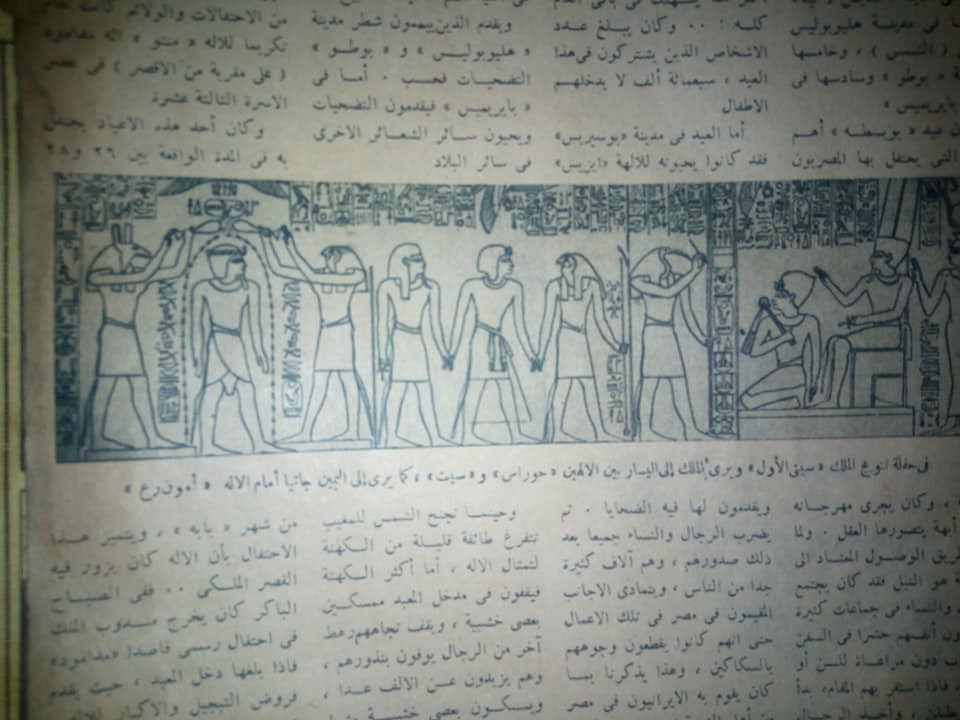 فى مدينة هليوبوليس
( الشمس ) ، وخامسها
« بوطو » وسادسها فى
بابريميس »
عيد « بوبسطه » أهم
التى يحتفل بها المصريون
كله ! ٠٠ وكان يبلغ عدد
الاشخاص الذين يشتركون فى هذا
العيد ، سبعمائة ألف لا يدخلهم
الاطفال
أما العيد فى مدينة «بوسيريس»
فقد كانوا يحيونه للالهة «ايزيس»
ويقدم الذين ييممون شطر مدينة
« هليوبوليس » و « بوطو »
التضحيات فحسب ٠ أما فى
« بابريميس » فيقدمون التضحيات
ويحيون سائر الشعائر الاخرى
فى سائر البلاد
من الاحتفالات والولائم كانت
تكريما للاله « منتو » اله
( على مقربة من الاقصر ) فى عصر
الاسرة الثالثة عشرة
وكان أحد هذه الاعياد يحتفل
به فى المدة الواقعة بين ٢٦ و ٢٨
فى حفلة تتويج الملك « سيتى الأول » ويرى الملك إلى اليسار بين الالهين «حوراس» و «سيت» ، كما يرى إلى اليمين جاثيا أمام الاله « أمون رع »
، وكان يجرى مهرجانه
أبهة يتصورها العقل ٠ ولما
طريق الوصول المعتاد الى
هو النيل فقد كان يجتمع
والنساء فى جماعات كثيرة
أنفسهم حشرا فى السفن
دون مراعاة للسن أو
، فاذا استقر بهم المقام، بدأ
ويقدمون لها فيه الضحايا ٠ ثم
يضرب الرجال والنساء جميعا بعد
ذلك صدورهم ، وهم آلاف كثيرة
جدا من الناس ، ويتمادى الاجانب
المقيمون فى مصر فى تلك الاعمال
حتى انهم كانوا يقطعون وجوههم
بالسكاكين ، وهذا يذكرنا بما
كان يقوم به الايرانيون فى مصر
وحينما تجنح الشمس للمغيب
تتفرغ طائفة قليلة من الكهنة
لتمثال الاله ، أما أكثر الكهنة
فيقفون فى مدخل المعبد ممسكين
بعصى خشبية ، ويقف تجاههم رهط
آخر من الرجال يوفون بنذورهم ،
وهم يزيدون عن الالف عدا ،
ويمسكون بعصى خشبية
من شهر « بابه » ، ويتميز هذا
الاحتفال بأن الاله كان يزور فيه
القصر الملكى ٠٠ ففى الصباح
الباكر كان يخرج مندوب الملك
فى احتفال رسمى قاصدا «مدامود»
فاذا بلغها دخل المعبد ، حيث يقدم
فروض التبجيل والاكبار للاله